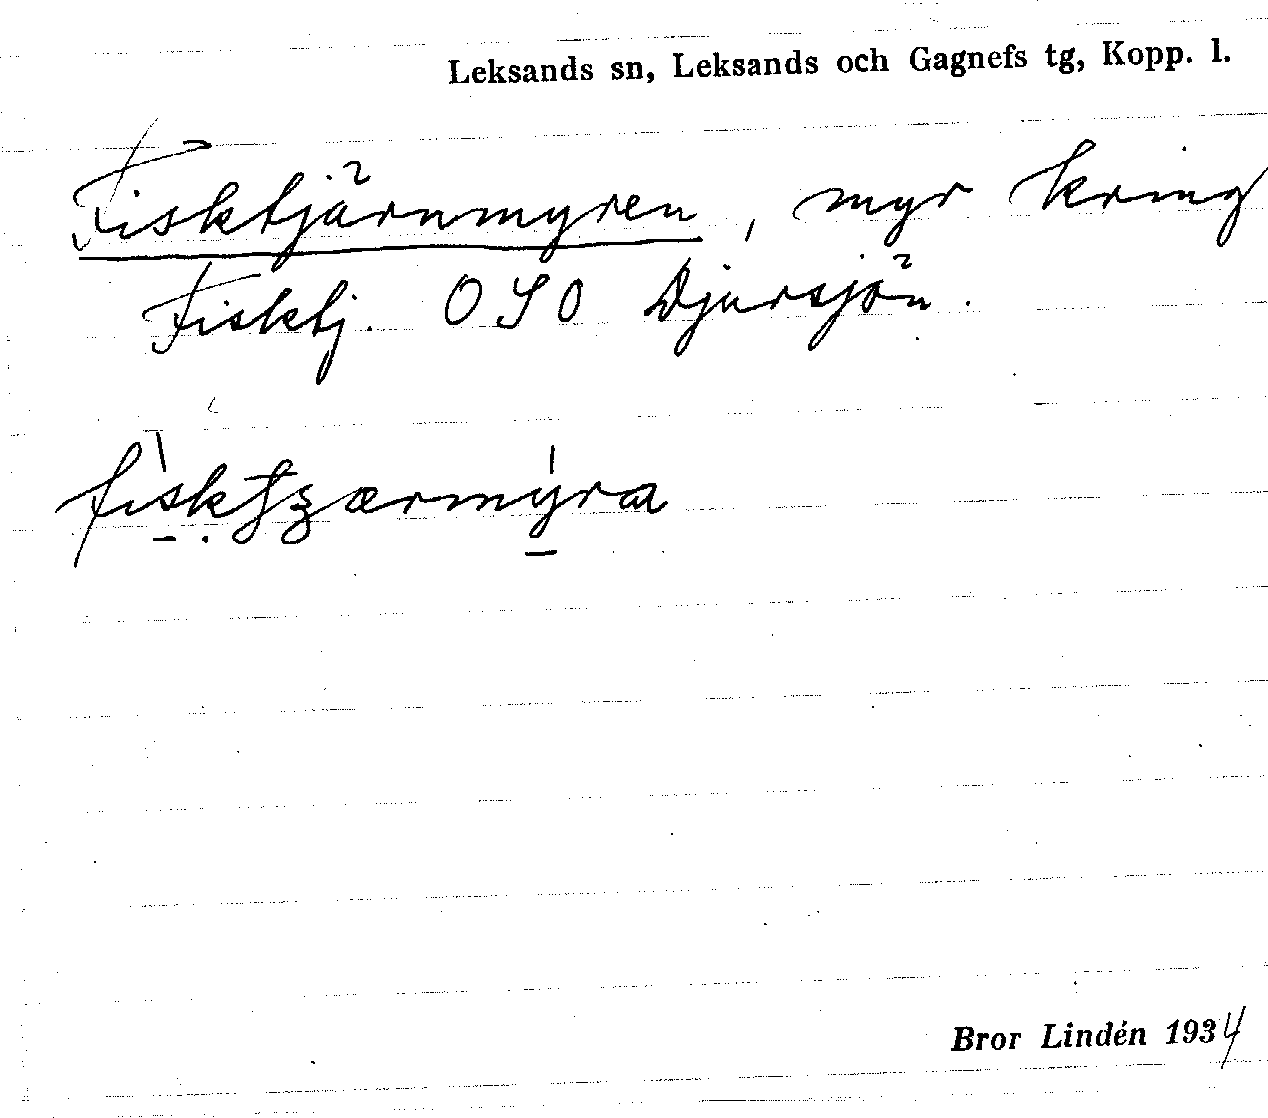 Leksands sn, Leksands och Gagnefs tg, Kopp. l.
Fisktjärnmyren, myr kring
Fisktj. OSO Djursjön.
fisktʒærmyra
Bror Lindén 1934